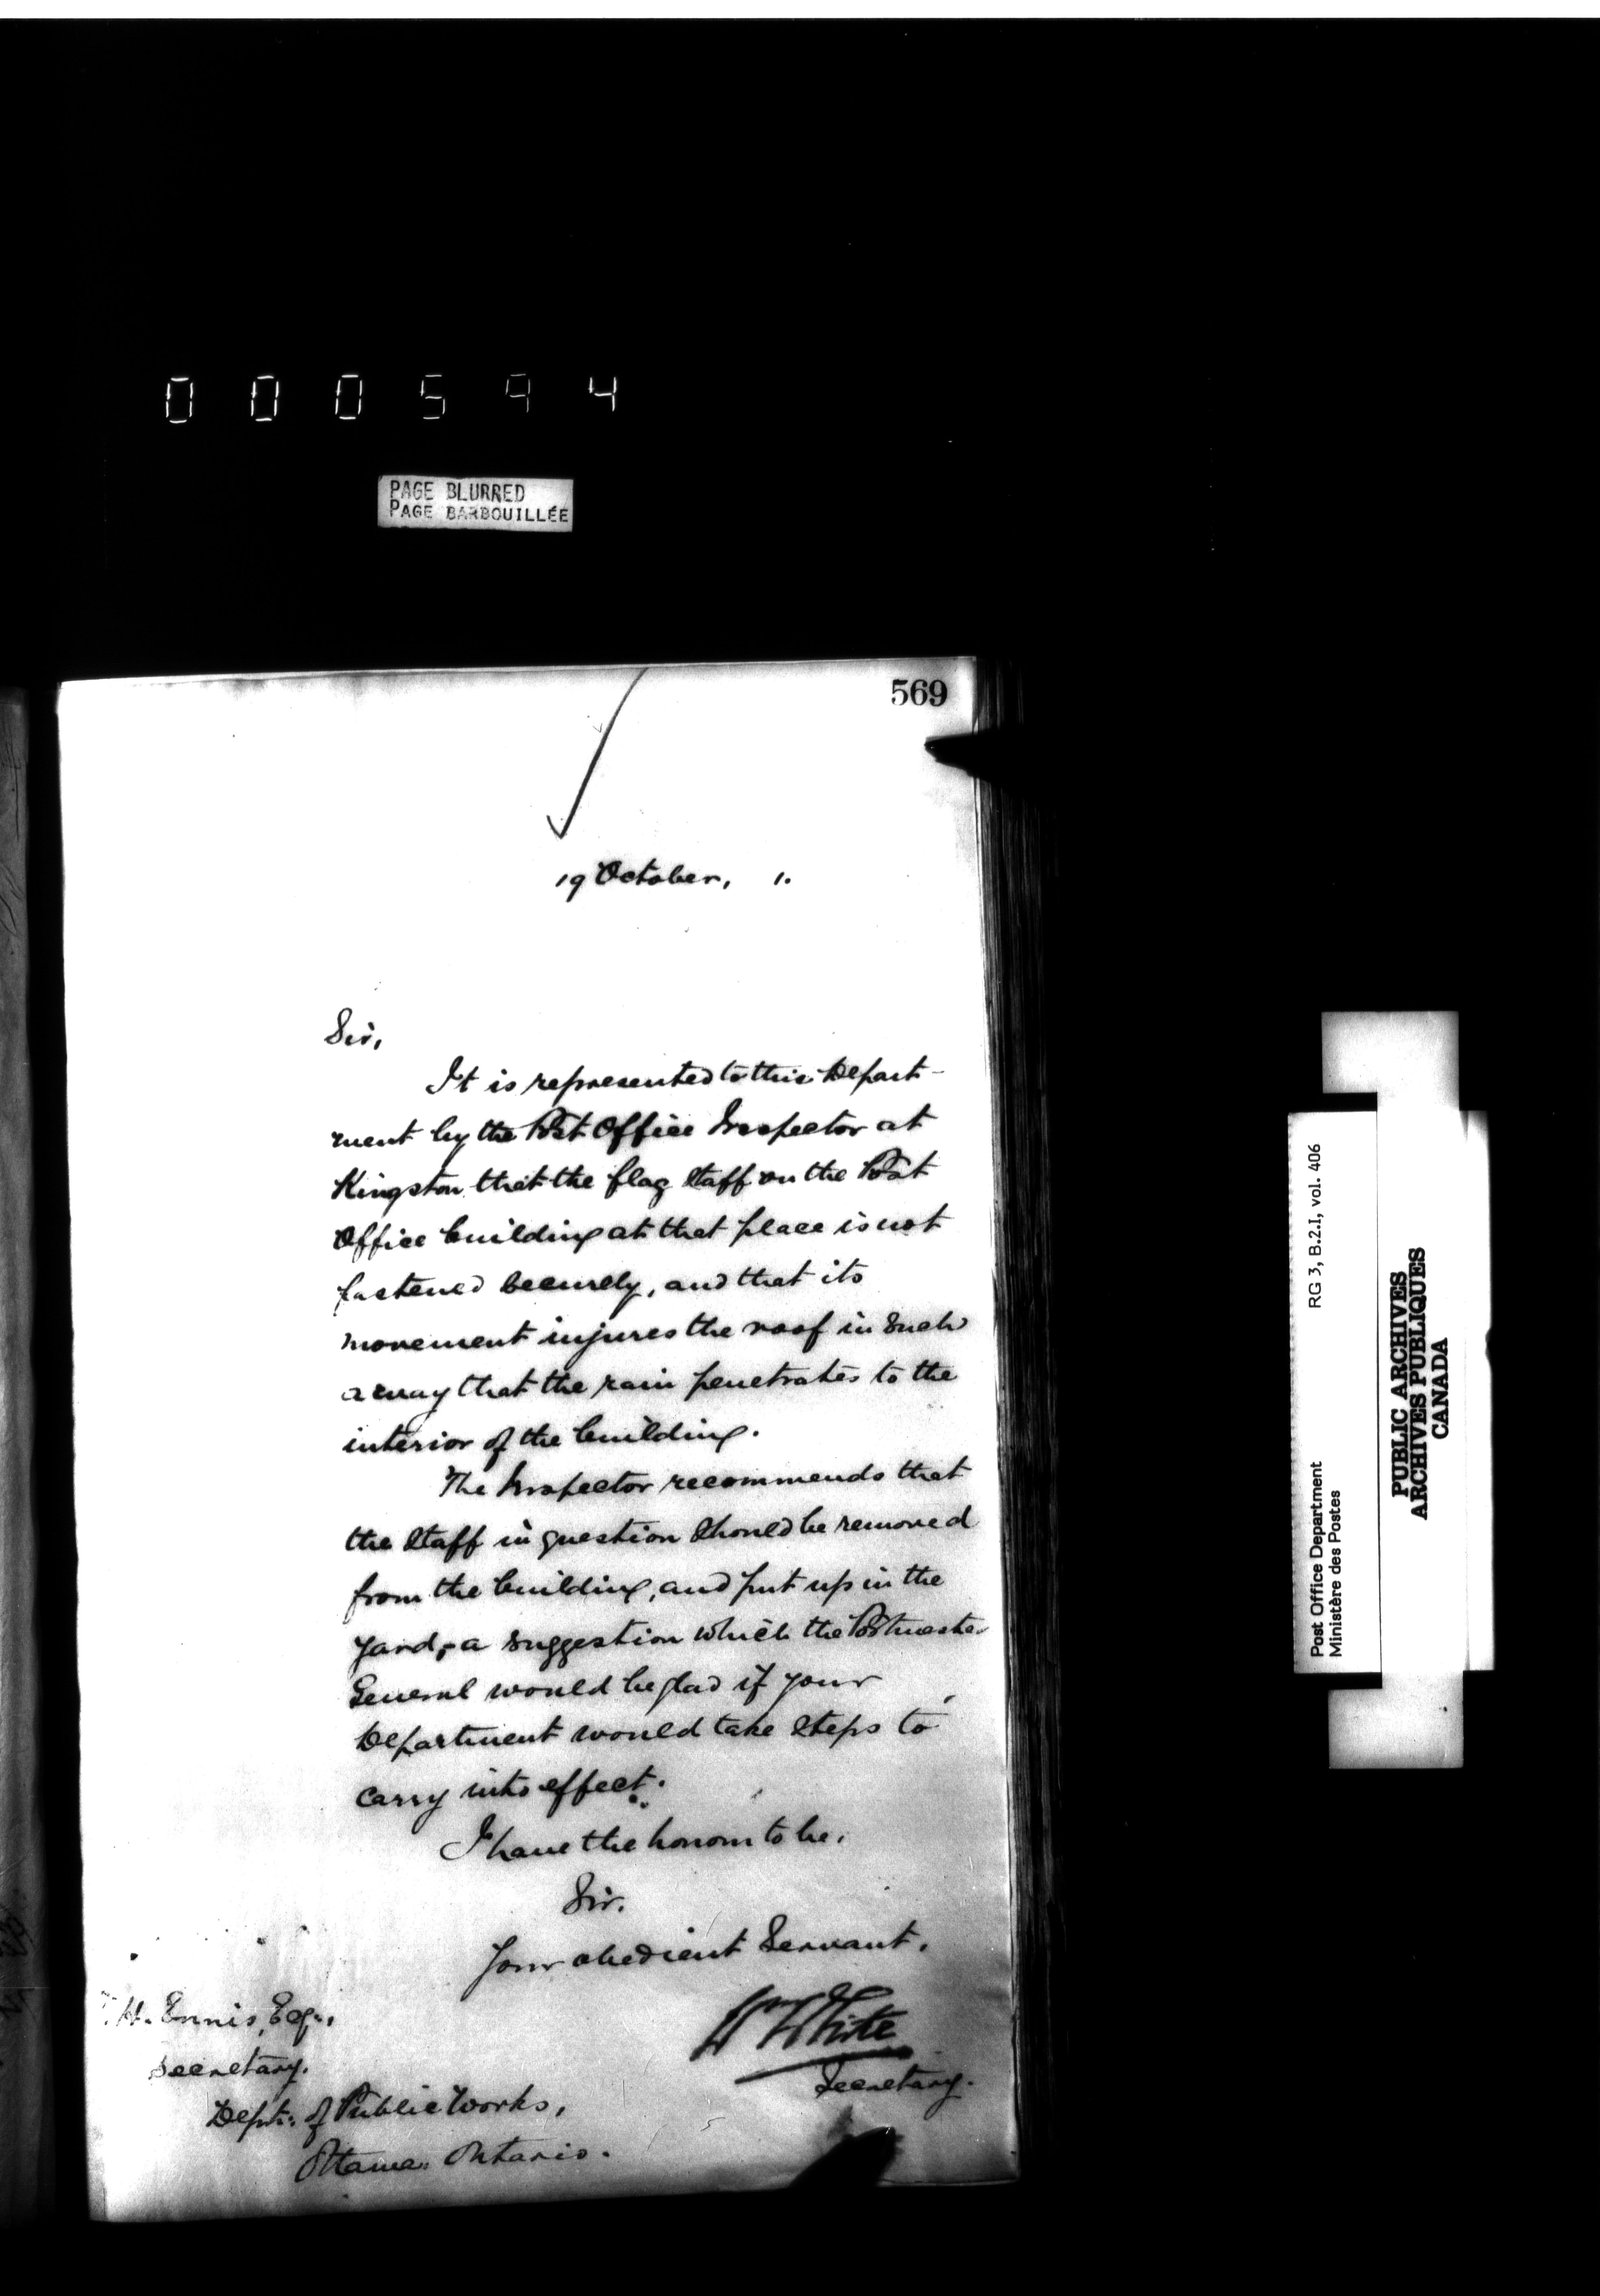 000594
PAGE BLURRED
PAGE BARBOUILLÉE
569
19 October, 1.
Sir,
It is represented to this Depart-
ment by the Post Office Inspector at
Kingston that the flag staff on the Post
Office building at that place is not
fastened securely, and that its
movement injures the roof in such
a way that the rain penetrates to the
interior of the building.
The Inspector recommends that
the staff in question should be removed
from the building, and put up in the
yard,- a suggestion which the Postmaster
General would be glad if your
Department would take steps to
carry into effect.
I have the honour to be,
Sir.
Your obedient Servant,
Wm White
Secretary.
H. Ennis, Esq.,
Secretary.
Dept. of Public Works,
Ottawa. Ontario.
Post Office Department RG 3, B.2.I, vol. 406
Ministère des Postes
PUBLIC ARCHIVES
ARCHIVES PUBLIQUES
CANADA